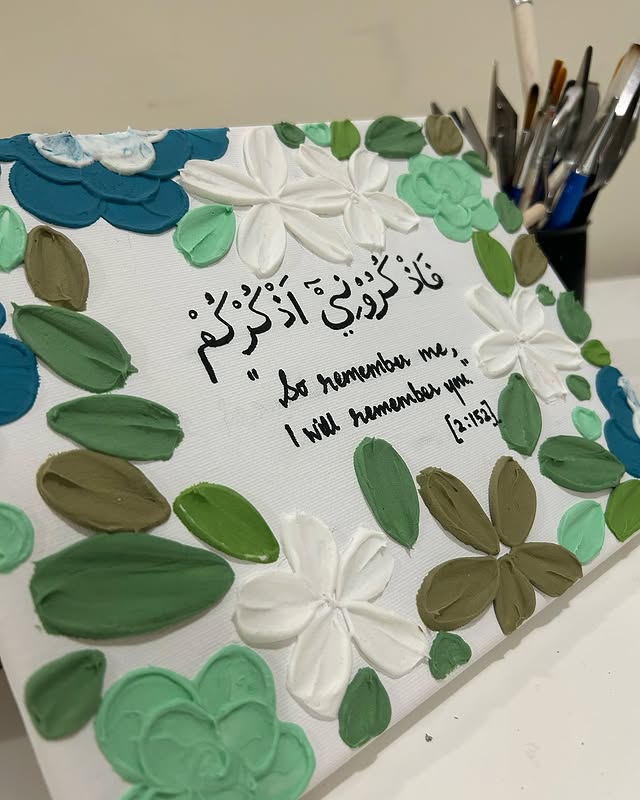 فَاذْكُرُوْنِيْٓ اَذْكُرْكُمْ
"So remember me,
I will remember you."
[2:152]